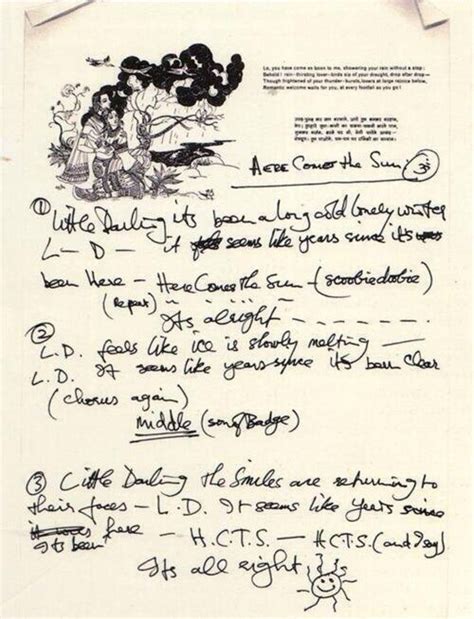 Lo, you have come as boon to me, showering your rain without a stop:
Behold! rain-thinking lover-birds sip of your draught, drop after drop—
Though frightened of your thunder-bursts, lovers at large rejoice below,
Romantic welcome waits for you, at every footfall as you go!
HERE Comes the Sun. ॐ
① Little Darling its been a long cold lonely winter
L — D — it seems like years since it's
been Here — Here Comes The Sun — (scoobie doobie)
(repeat)
Its alright — — — — — —
② L.D. feels like ice is slowly melting —
L.D. It seems like years since its been Clear
(chorus again)
Middle (song Badge)
③ Little Darling The Smiles are returning to
their faces — L.D. It seems like years since
it was here — H.C.T.S. — H.C.T.S. (and I say)
Its been
Its all right